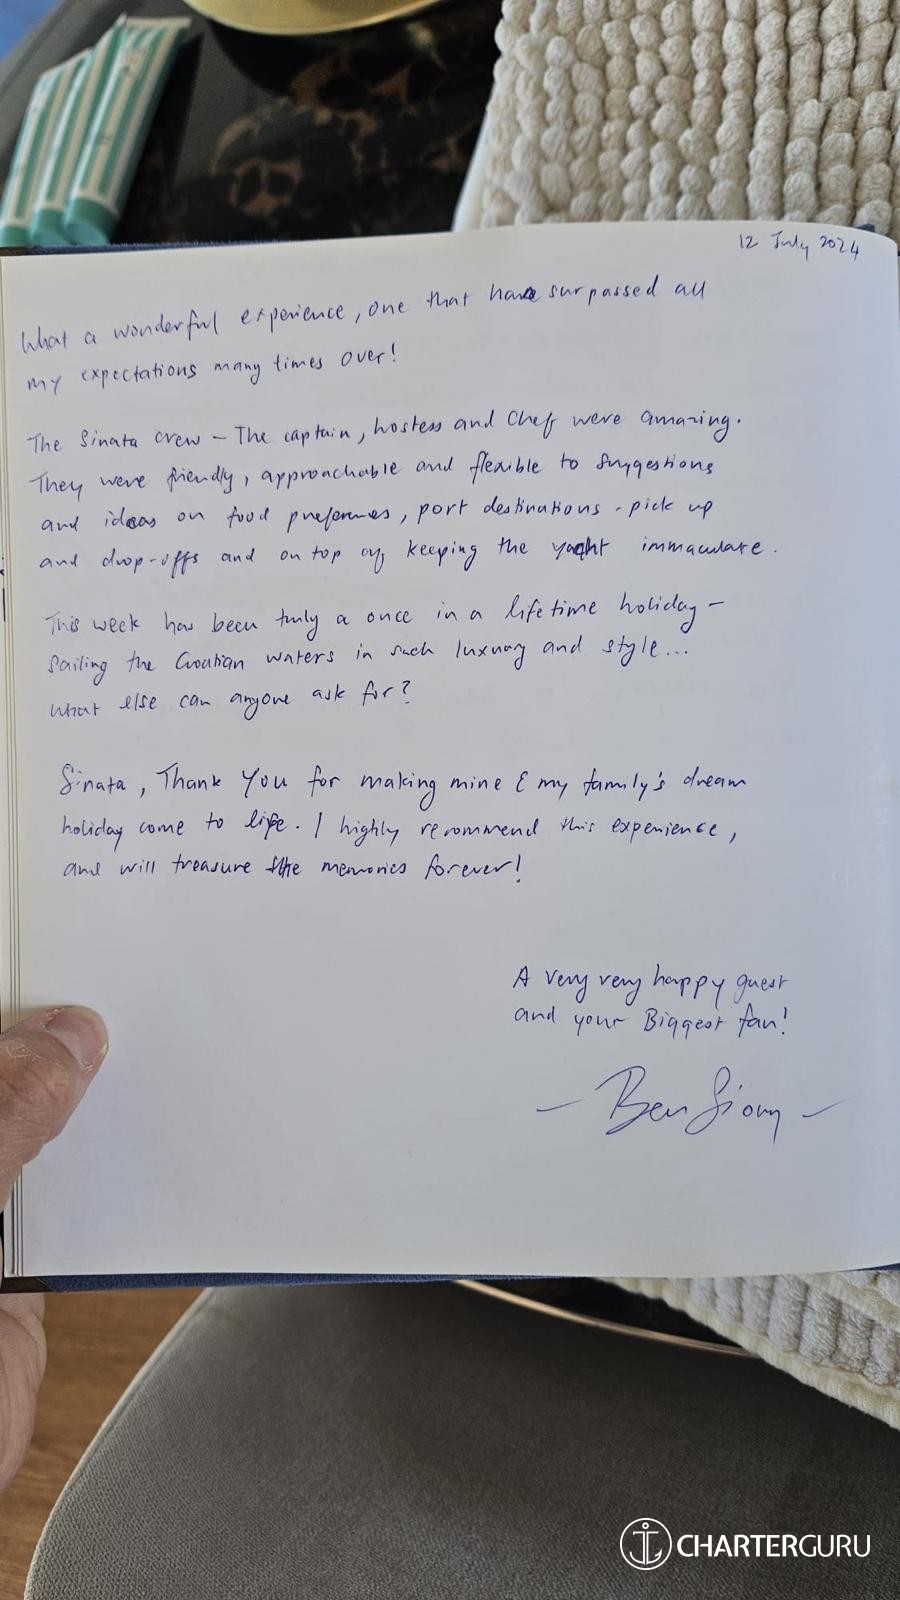 12 July 2024
What a wonderful experience, one that have surpassed all
my expectations many times over!
The Sinata crew – The captain, hostess and Chef were amazing.
They were friendly, approachable and flexible to suggestions
and ideas on food preferences, port destinations - pick up
and drop-offs and on top of keeping the yacht immaculate.
This week has been truly a once in a lifetime holiday –
Sailing the Croatian waters in such luxury and style...
what else can anyone ask for?
Sinata, Thank You for making mine & my family's dream
holiday come to life. I highly recommend this experience,
and will treasure the memories forever!
A very very happy guest
and your Biggest fan!
– Ben Siong –
CHARTERGURU